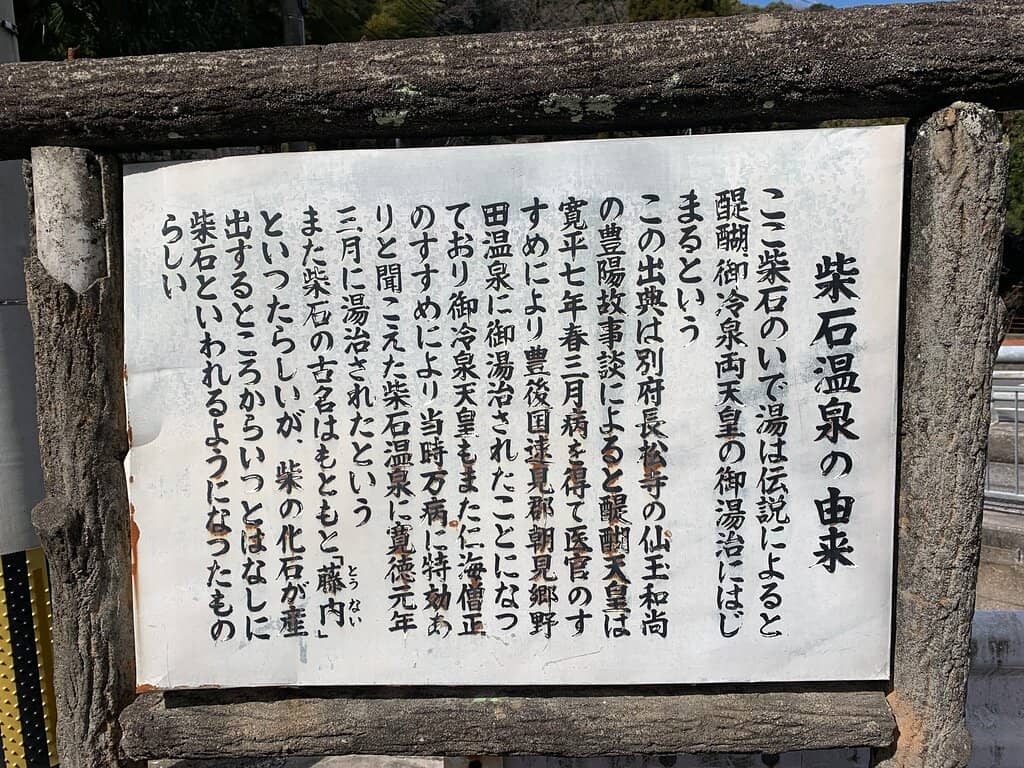 柴石温泉の由来
ここ柴石のいで湯は伝説によると
醍醐御冷泉両天皇の御湯治にはじ
まるという
この出典は別府長松寺の仙玉和尚
の豊陽故事談によると醍醐天皇は
寛平七年春三月病を得て医官のす
すめにより豊後国速見郡朝見郷野
田温泉に御湯治されたことになっ
ており御冷泉天皇もまた仁海僧正
のすすめにより当時万病に特効あ
りと聞こえた柴石温泉に寛徳元年
三月に湯治されたという
また柴石の古名はもともと「藤内」
とうない
といつたらしいが、柴の化石が産
出するところからいつとはなしに
柴石といわれるようになったもの
らしい